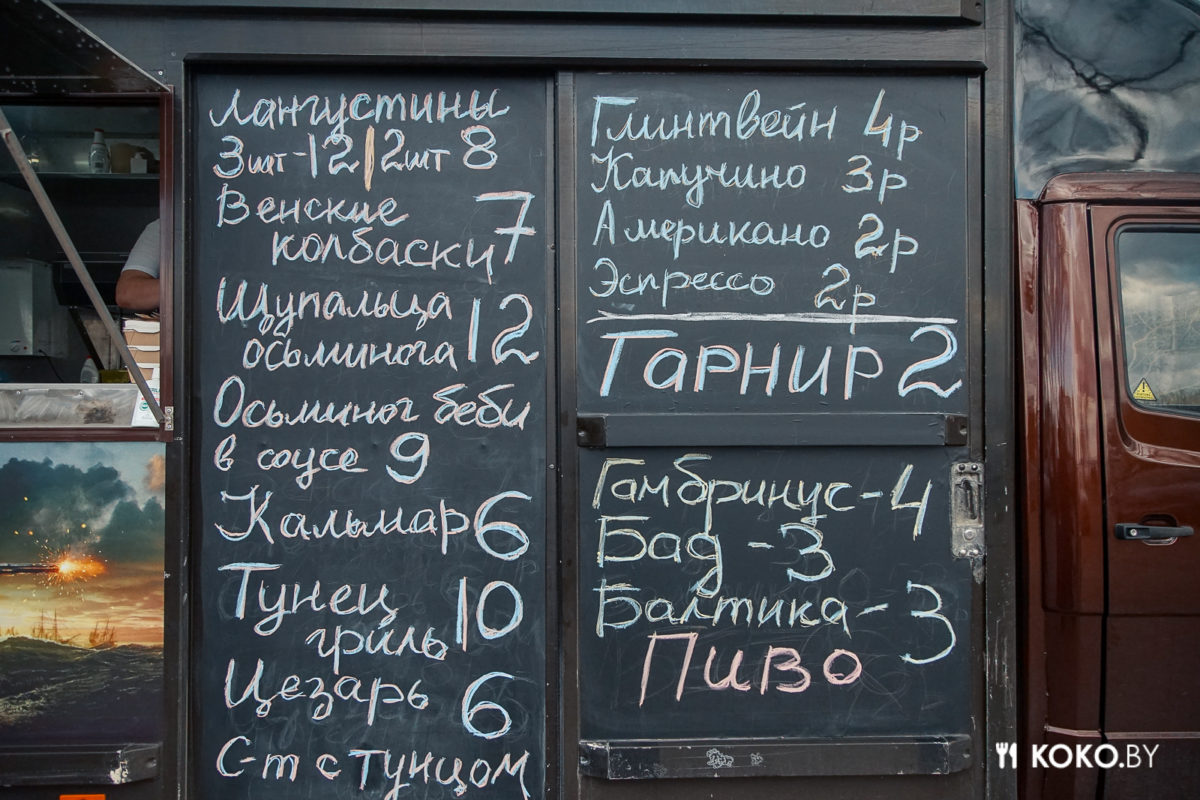 Лангустины
3шт-12|2шт 8
Венские
колбаски 7
Щупальца
осьминога 12
Осьминог беби
в соусе 9
Кальмар 6
Тунец
гриль 10
Цезарь 6
С-т с тунцом
Глинтвейн 4р
Капучино 3р
Американо 2р
Эспрессо 2р
Гарнир 2
Гамбринус-4
Бад-3
Балтика-3
Пиво
KOKO.BY